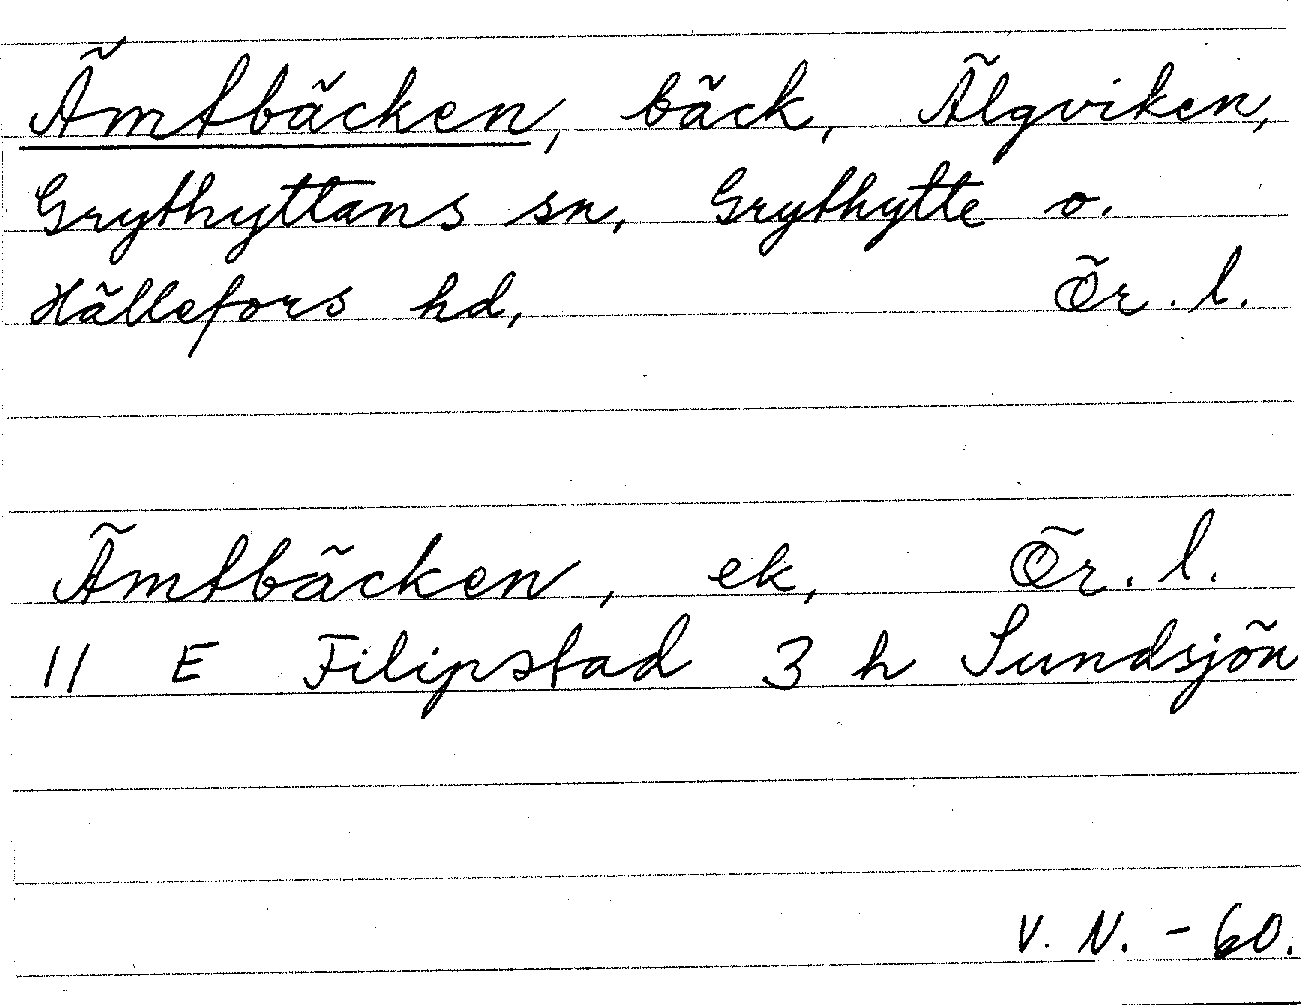 Ämtbäcken, bäck, Älgviken,
Grythyttans sn, Grythytte o.
Hällefors hd, Ör. l.
Ämtbäcken, ek, Ör. l.
11 E Filipstad 3 h Sundsjön
V. N. - 60.